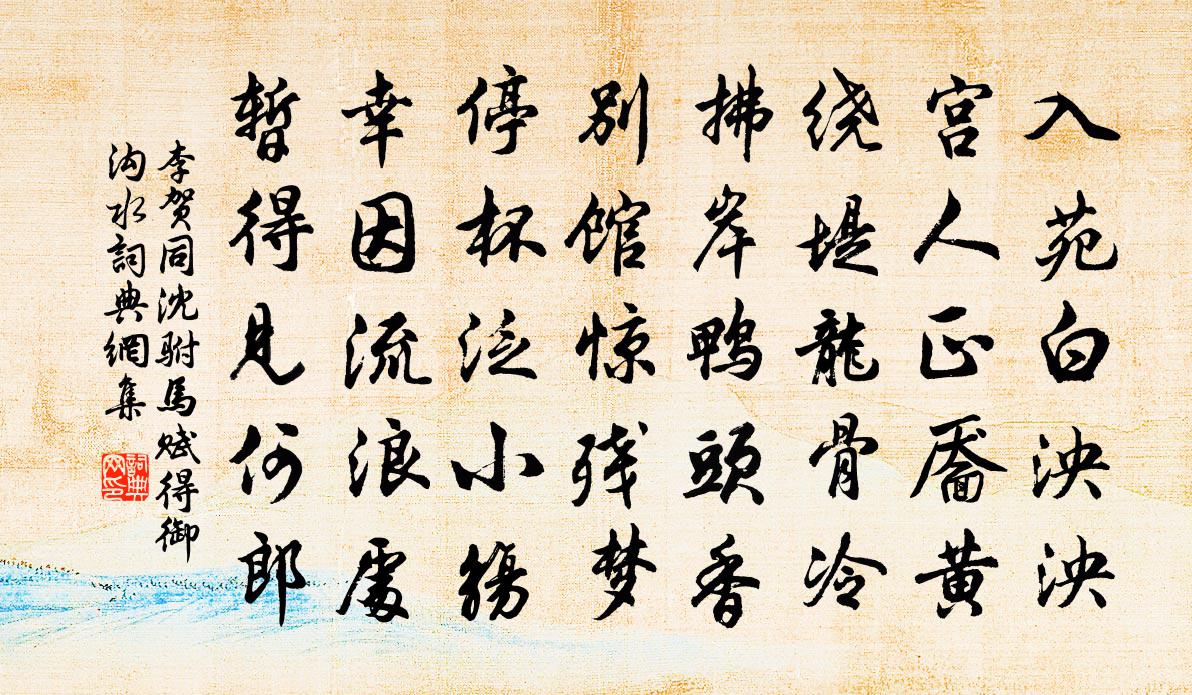 入苑白泱泱
宫人正靥黄
绕堤龍骨冷
拂岸鸭頭香
别馆惊残梦
停杯泛小觞
幸因流浪處
暂得见何郎
李贺同沈驸馬赋得御
沟水詞典網集
詞典
网印